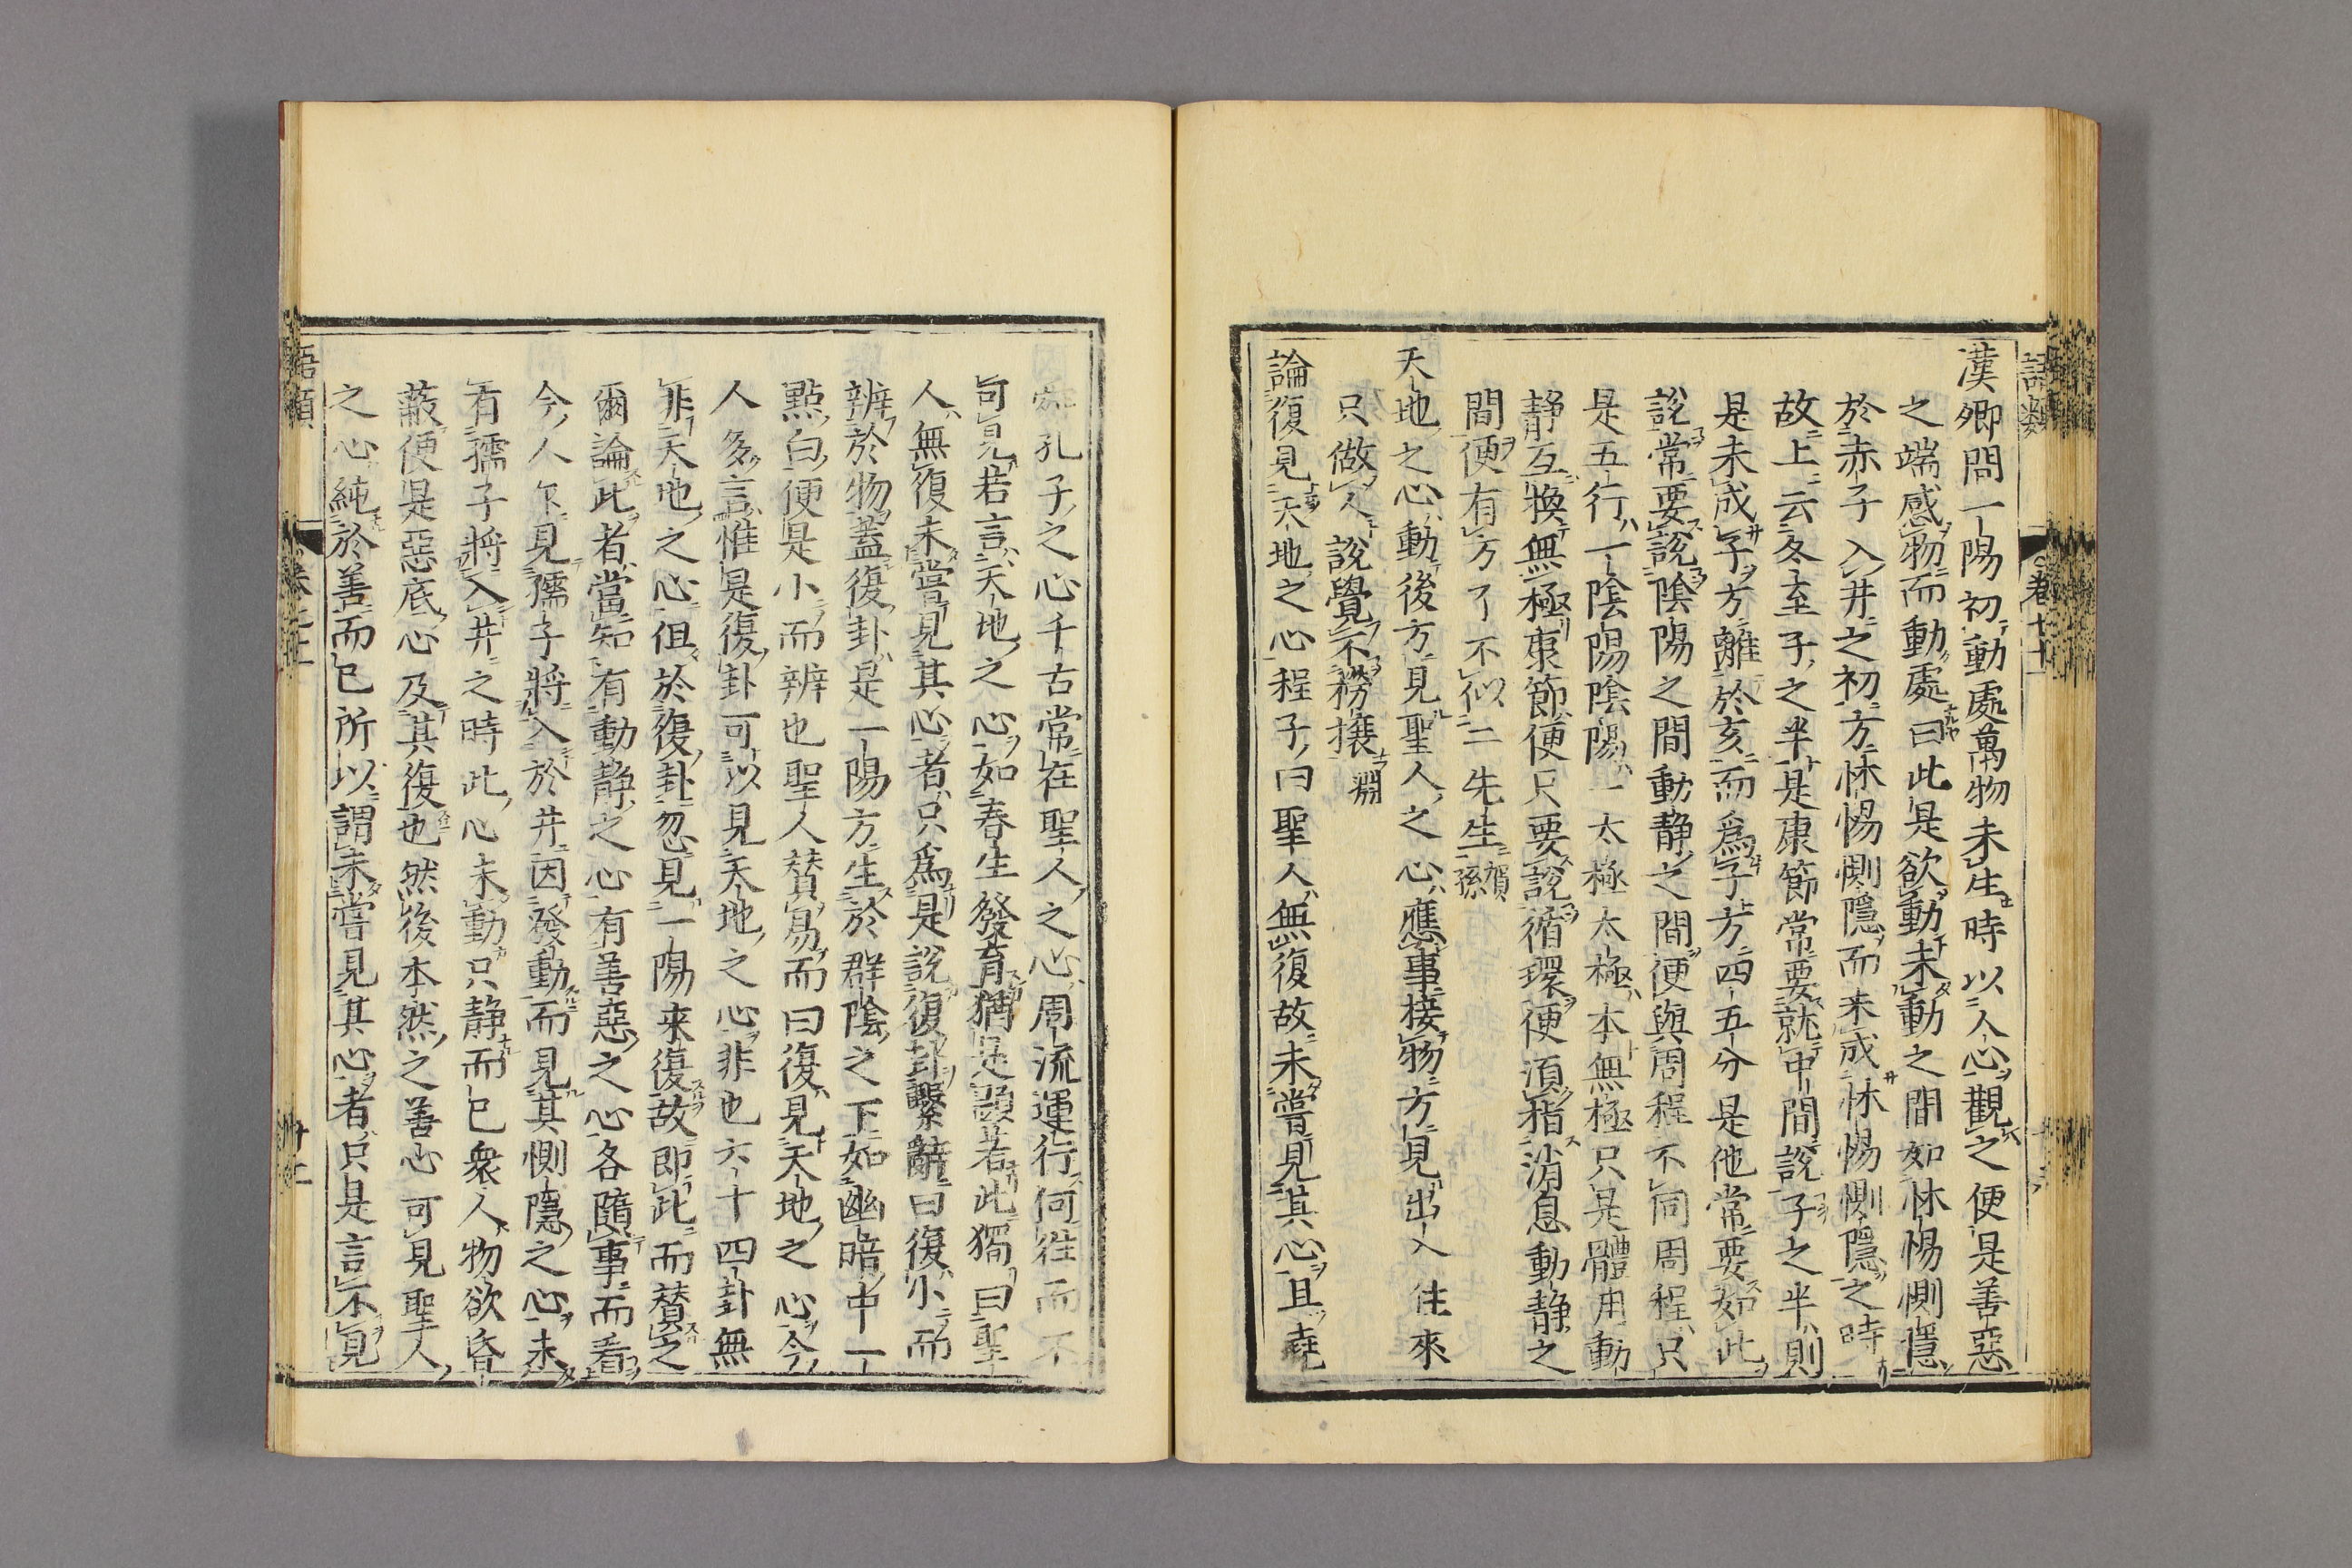 語類
卷七十一
漢卿問一陽初動處萬物未生時以人心觀之便是善惡
之端感物而動處曰此是欲動未動之間如怵惕惻隱
於赤子入井之初方怵惕惻隱而未成怵惕惻隱之時
故上云冬至子之半是康節常要就中間說子之半則
是未成子方離於亥而爲子方四五分是他常要如此
說常要說陰陽之間動静之間便與周程不同周程只
是五行一陰陽陰陽一太極太極本無極只是體用動
静互換無極康節便只要說循環便須指消息動静之
間便有方了不似二先生
賀孫
天地之心動後方見聖人之心應事接物方見出入往來
只做人說覺不撈攘
淵
論復見天地之心程子曰聖人無復故未嘗見其心且堯
孔子之心千古常在聖人之心周流運行何往而不
可見若言天地之心如春生發育猶是顯著此獨曰聖
人無復未嘗見其心者只爲是說復卦繫辭曰復小而
辨於物蓋復卦是一陽方生於群陰之下如幽暗中一
點白便是小而辨也聖人賛易而曰復見天地之心今
人多言惟是復卦可以見天地之心非也六十四卦無
非天地之心但於復卦忽見一陽來復故即此而賛之
爾論此者當知有動静之心有善惡之心各隨事而看
今人乍見孺子將入於井因發動而見其惻隱之心未
有孺子將入井之時此心未動只静而已衆人物欲昏
蔽便是惡底心及其復也然後本然之善心可見聖人
之心純於善而已所以謂未嘗見其心者只是言不見
語類